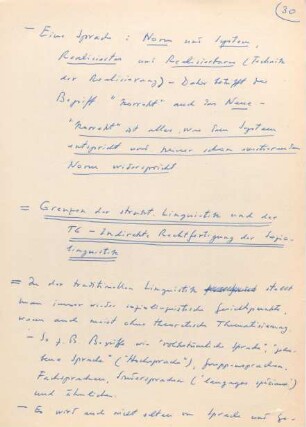 30
- Eine Sprache: Norm und System,
Realisiertes und Realisierbares (Technik
der Realisierung) - Daher betrifft der
Begriff "korrekt" auch die Norm -
"korrekt" ist alles, was dem System
entspricht und keiner schon existierenden
Norm widerspricht
= Grenzen der strukt. Linguistik und der
TG - Indirekte Rechtfertigung der Sozio-
linguistik
= In der traditionellen Linguistik stellt
man immer wieder soziolinguistische Gesichtspunkte,
wenn auch meist ohne theoretische Thematisierung
- So z.B. Begriffe wie "volkstümliche Sprache", "geho-
bene Sprache" ("Hochsprache"), Gruppensprachen,
Fachsprachen, Sondersprachen ("langages spéciaux")
und ähnliches.
- Es wird auch nicht selten von Sprache und Ge-